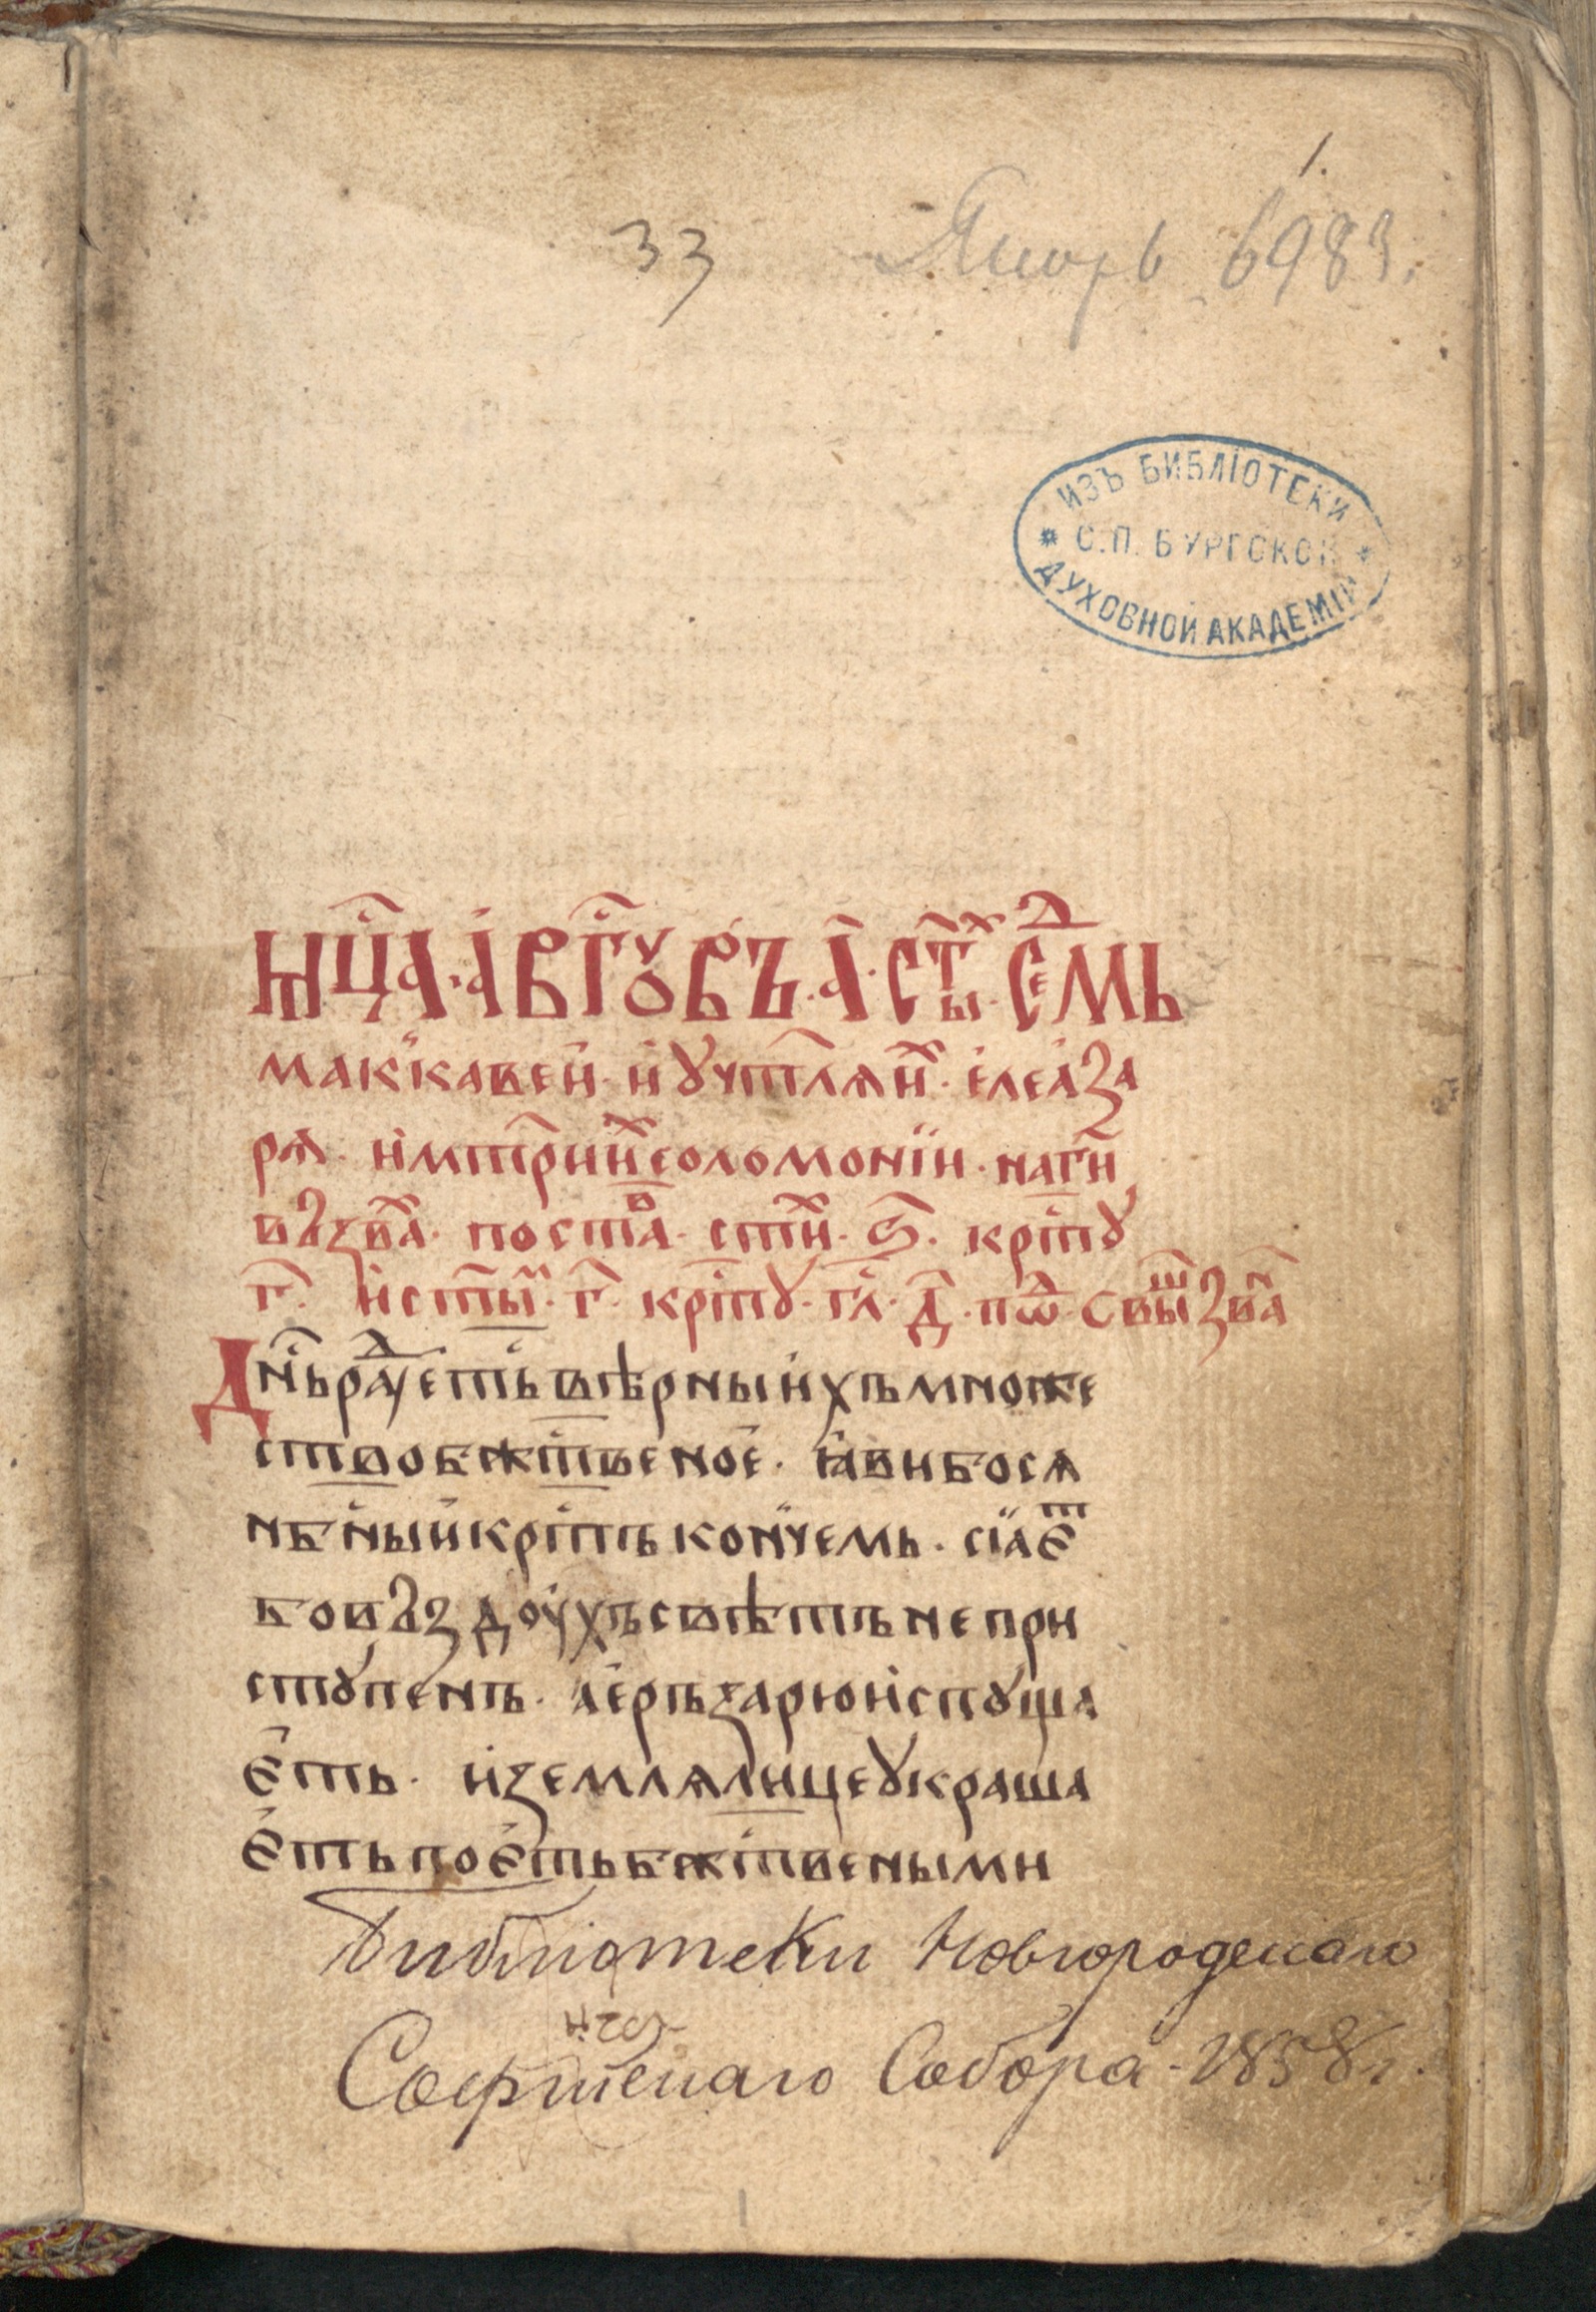 1.
33 Январь 6983.
ИЗЪ БИБЛІОТЕКИ
С.П.БУРГСКОЙ
ДУХОВНОЙ АКАДЕМІИ
мц҃а · авгоу҃ въ · а҃ · ст҃ыхъ · седмь
маккавеи · и ꙋчт҃лѧ их · елеаза
рѧ · и мт҃ри их соломоніи · на ги҃
възва · поста · ст҃и · ѕ҃ · кртꙋ
г҃ · и ст҃ы · г҃ · кртꙋ · гл҃ · д҃ · пѡд · свыш зва
Дн҃ь радꙋеть вѣрныихъ множе
ство бж҃твеное · ꙗви бо сѧ
нб҃ныи крт҃ъ коньчемь · сіает
бо въздоухъ свѣтъ непри
стꙋпенъ · аеръ зарю испꙋща
еть · и землѧ лице ꙋкраша
еть поеть бж҃твеными
Библіотеки Новгородскаго
Софійскаго Собора - 1858 г.